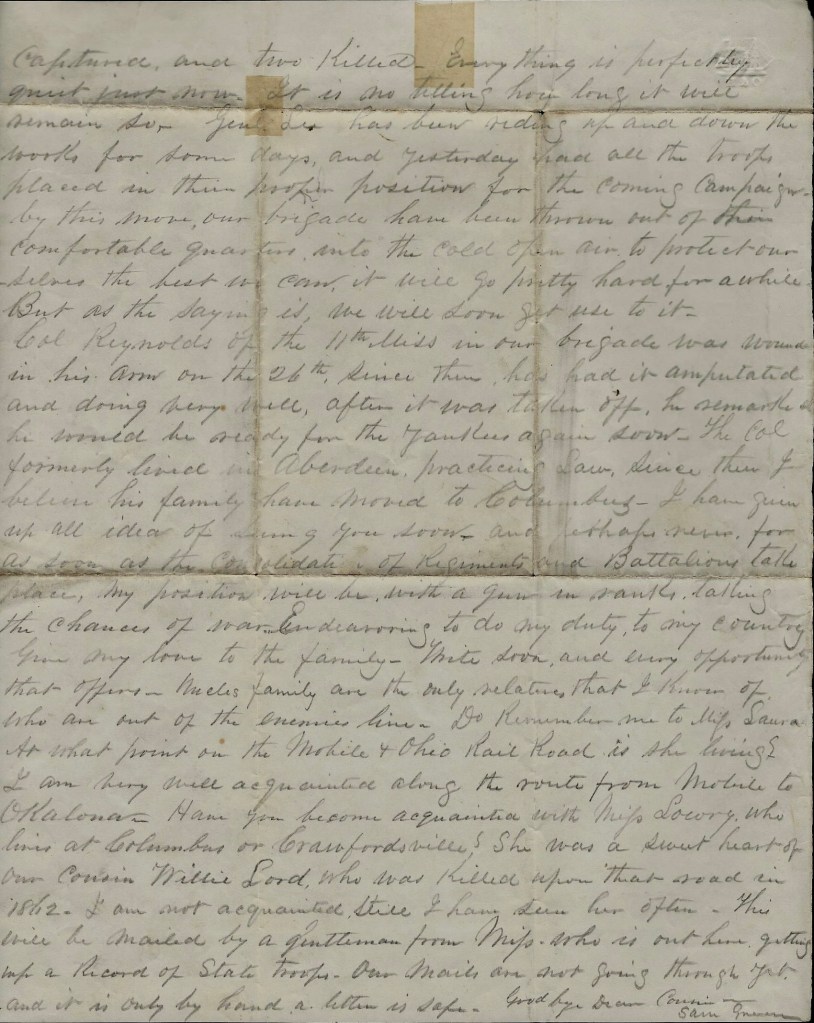 Captured, and two Killed- Everything is perfectly
quiet just now- It is no telling how long it will
remain so- Genl Lee has been riding up and down the
works for some days, and yesterday had all the troops
placed in their proper position for the coming Campaign-
by this move, our brigade have been thrown out of their
comfortable quarters, into the cold open air, to protect our
selves the best we can, it will go pretty hard for awhile-
But as the saying is, we will soon get use to it-
Col Reynolds of the 11th Miss in our brigade was wound
in his arm on the 26th, since then, has had it amputated
and doing very well, after it was taken off, he remarked
he would be ready for the Yankees again soon- The Col
formerly lived in Aberdeen, practicing Law, since then I
believe his family have moved to Columbus- I have given
up all idea of seeing you soon- and perhaps never, for
as soon as the Consolidation of Regiments and Battalions take
place, my position will be, with a gun in ranks, taking
the chances of war- Endeavoring to do my duty, to my country
Give my love to the family- Write soon, and every opportunity
that offers- Uncles family are the only relatives that I know of,
who are out of the enemies line- Do Remember me to Miss Laura
At what point on the Mobile & Ohio Rail Road is she living?
I am very well acquainted along the route from Mobile to
OKalona- Have you become acquainted with Miss Lowry, who
lives at Columbus or Crawfordsville? She was a sweet heart of
our Cousin Willie Lord, who was Killed upon that road in
1862- I am not acquainted, still I have seen her often- This
will be mailed by a gentleman from Miss- who is out here, getting
up a Record of State troops- Our mails are not going through yet.
and it is only by hand a letter is safe- Goodbye Dear Cousin-
Sam